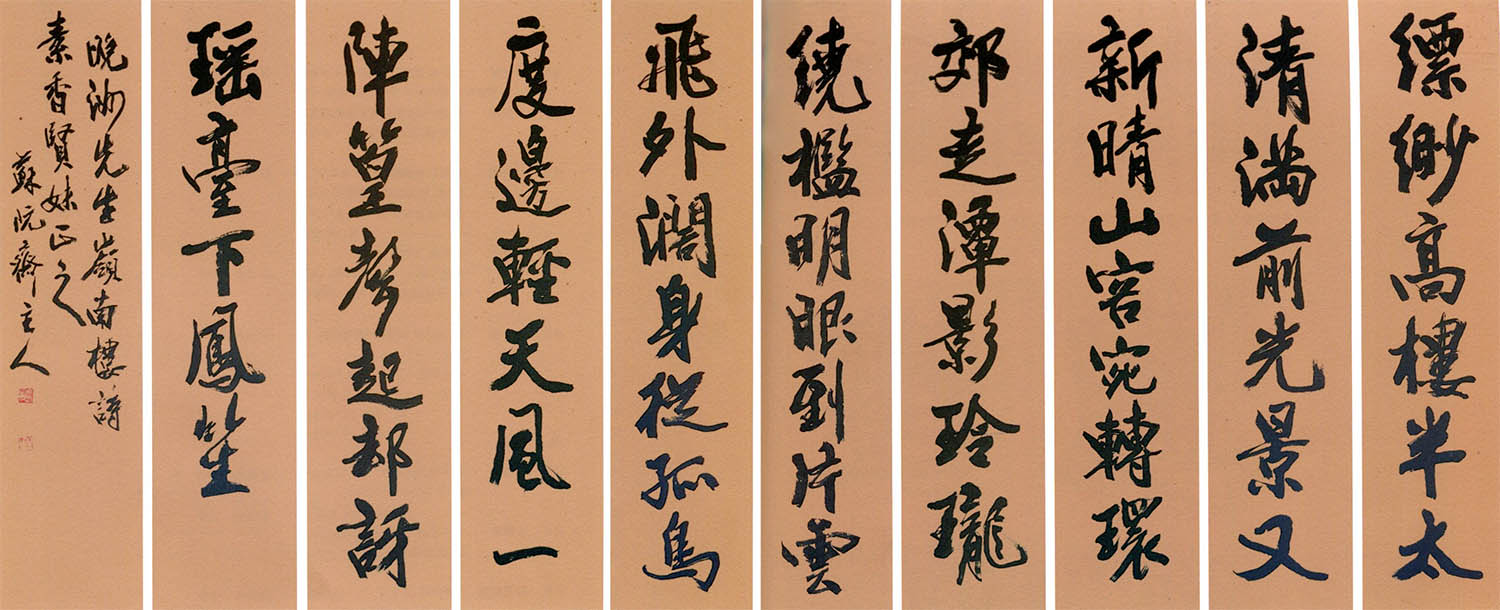 縹緲高樓半太
清滿前光景又
新晴山容宛轉環
郊走潭影玲瓏
繞檻明眼到片雲
飛外濶身從孤鳥
度邊輕天風一
陣篁聲起却訝
瑶臺下鳳笙
晚沙先生嶺南樓詩
素香賢妹正之
蘇阮齋主人